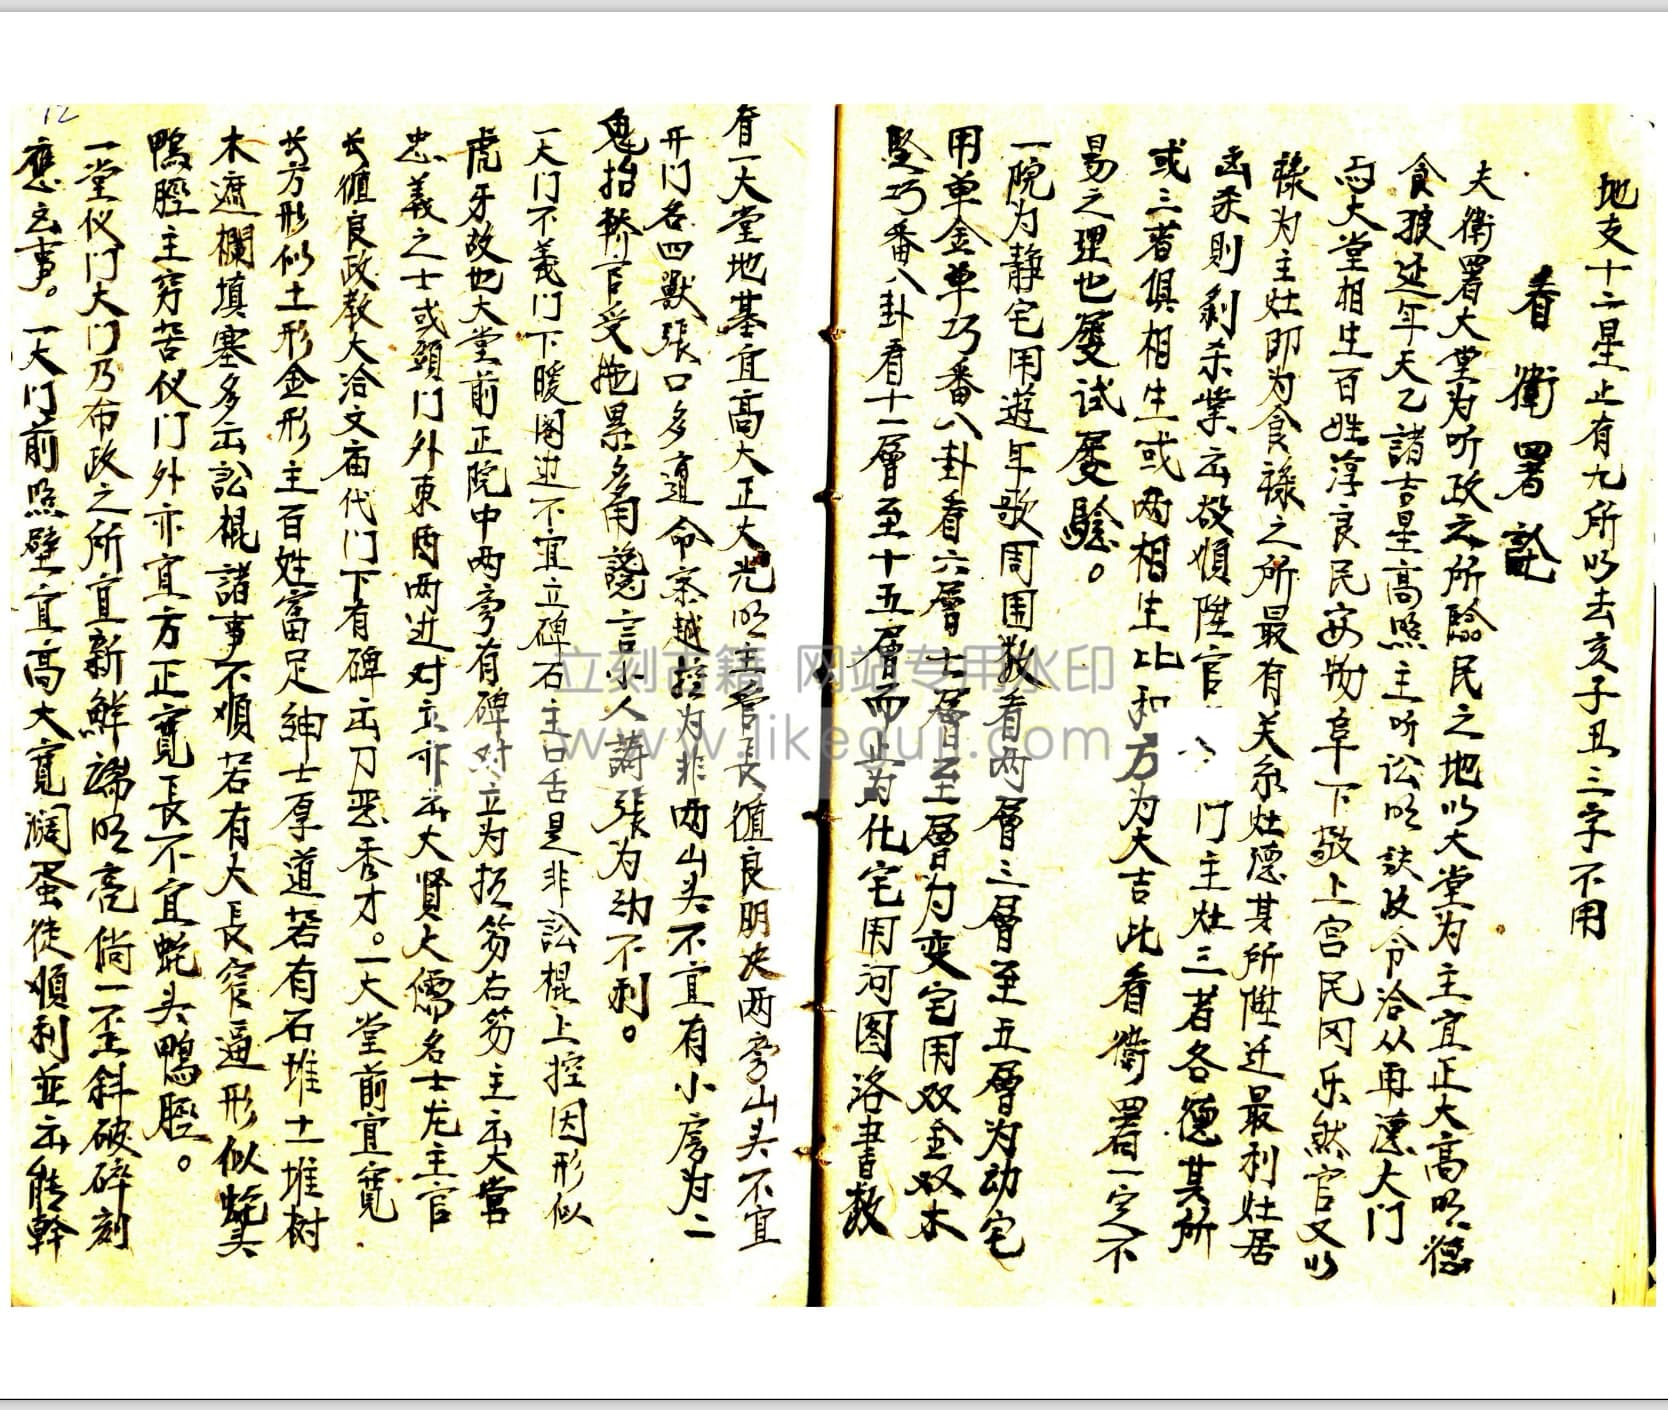 地支十二星止有九所以去亥子丑三字不用
看衙署訣
夫衙署大堂为听政之所臨民之地以大堂为主宜正大高明德
食狼延年天乙諸吉星高照主听讼明訣政令洽从再凛大门
而大堂相生百姓淳良民安物阜下敬上宫民冈乐然官又以
禄为主灶即为食禄之所最有关系灶德其所陞迁最利灶居
凶杀则剥杀業云欲順陞官 门主灶三者各德其所
或三者俱相生或两相生比和方为大吉此看衙署一定不
易之理也屡試屡驗。
一院为静宅用遊年歌周围数看两層三層至五層为动宅
用单金单巧番八卦看六層七層至層为变宅用双金双木
坚巧番八卦看十一層至十五層而止为化宅用河图洛書数
看一大堂地基宜高大正大光明主管長循良明决两旁山头不宜
开门各四獸張口多道命案越控为非两山头不宜有小房为二
鬼抬轎官受拖累多角謊言小人譸張为动不利。
一大门不義门下暖阁进不宜立碑石主口舌是非訟棍上控因形似
虎牙故也大堂前正院中两旁有碑对立为执笏右笏主出大富
忠義之士或頭门外東西两边对立亦出大賢大儒名士尤主官
长循良政教大洽文庙代门下有碑主出刀恶秀才。一大堂前宜寬
长方形似土形金形主百姓富足紳士厚道若有石堆土堆树
木遮欄填塞多出訟棍諸事不順若有大長窄逼形似蛇头
鴨脛主穷苦仪门外亦宜方正寬長不宜蛇头鴨脛。
一堂仪门大门乃布政之所宜新鮮端明亮倘一歪斜破碎刻
應玄事。一大门前照壁宜高大寬濶蛋徒順利並出能幹
12
立刻古籍 网站专用水印
www.likeguji.com